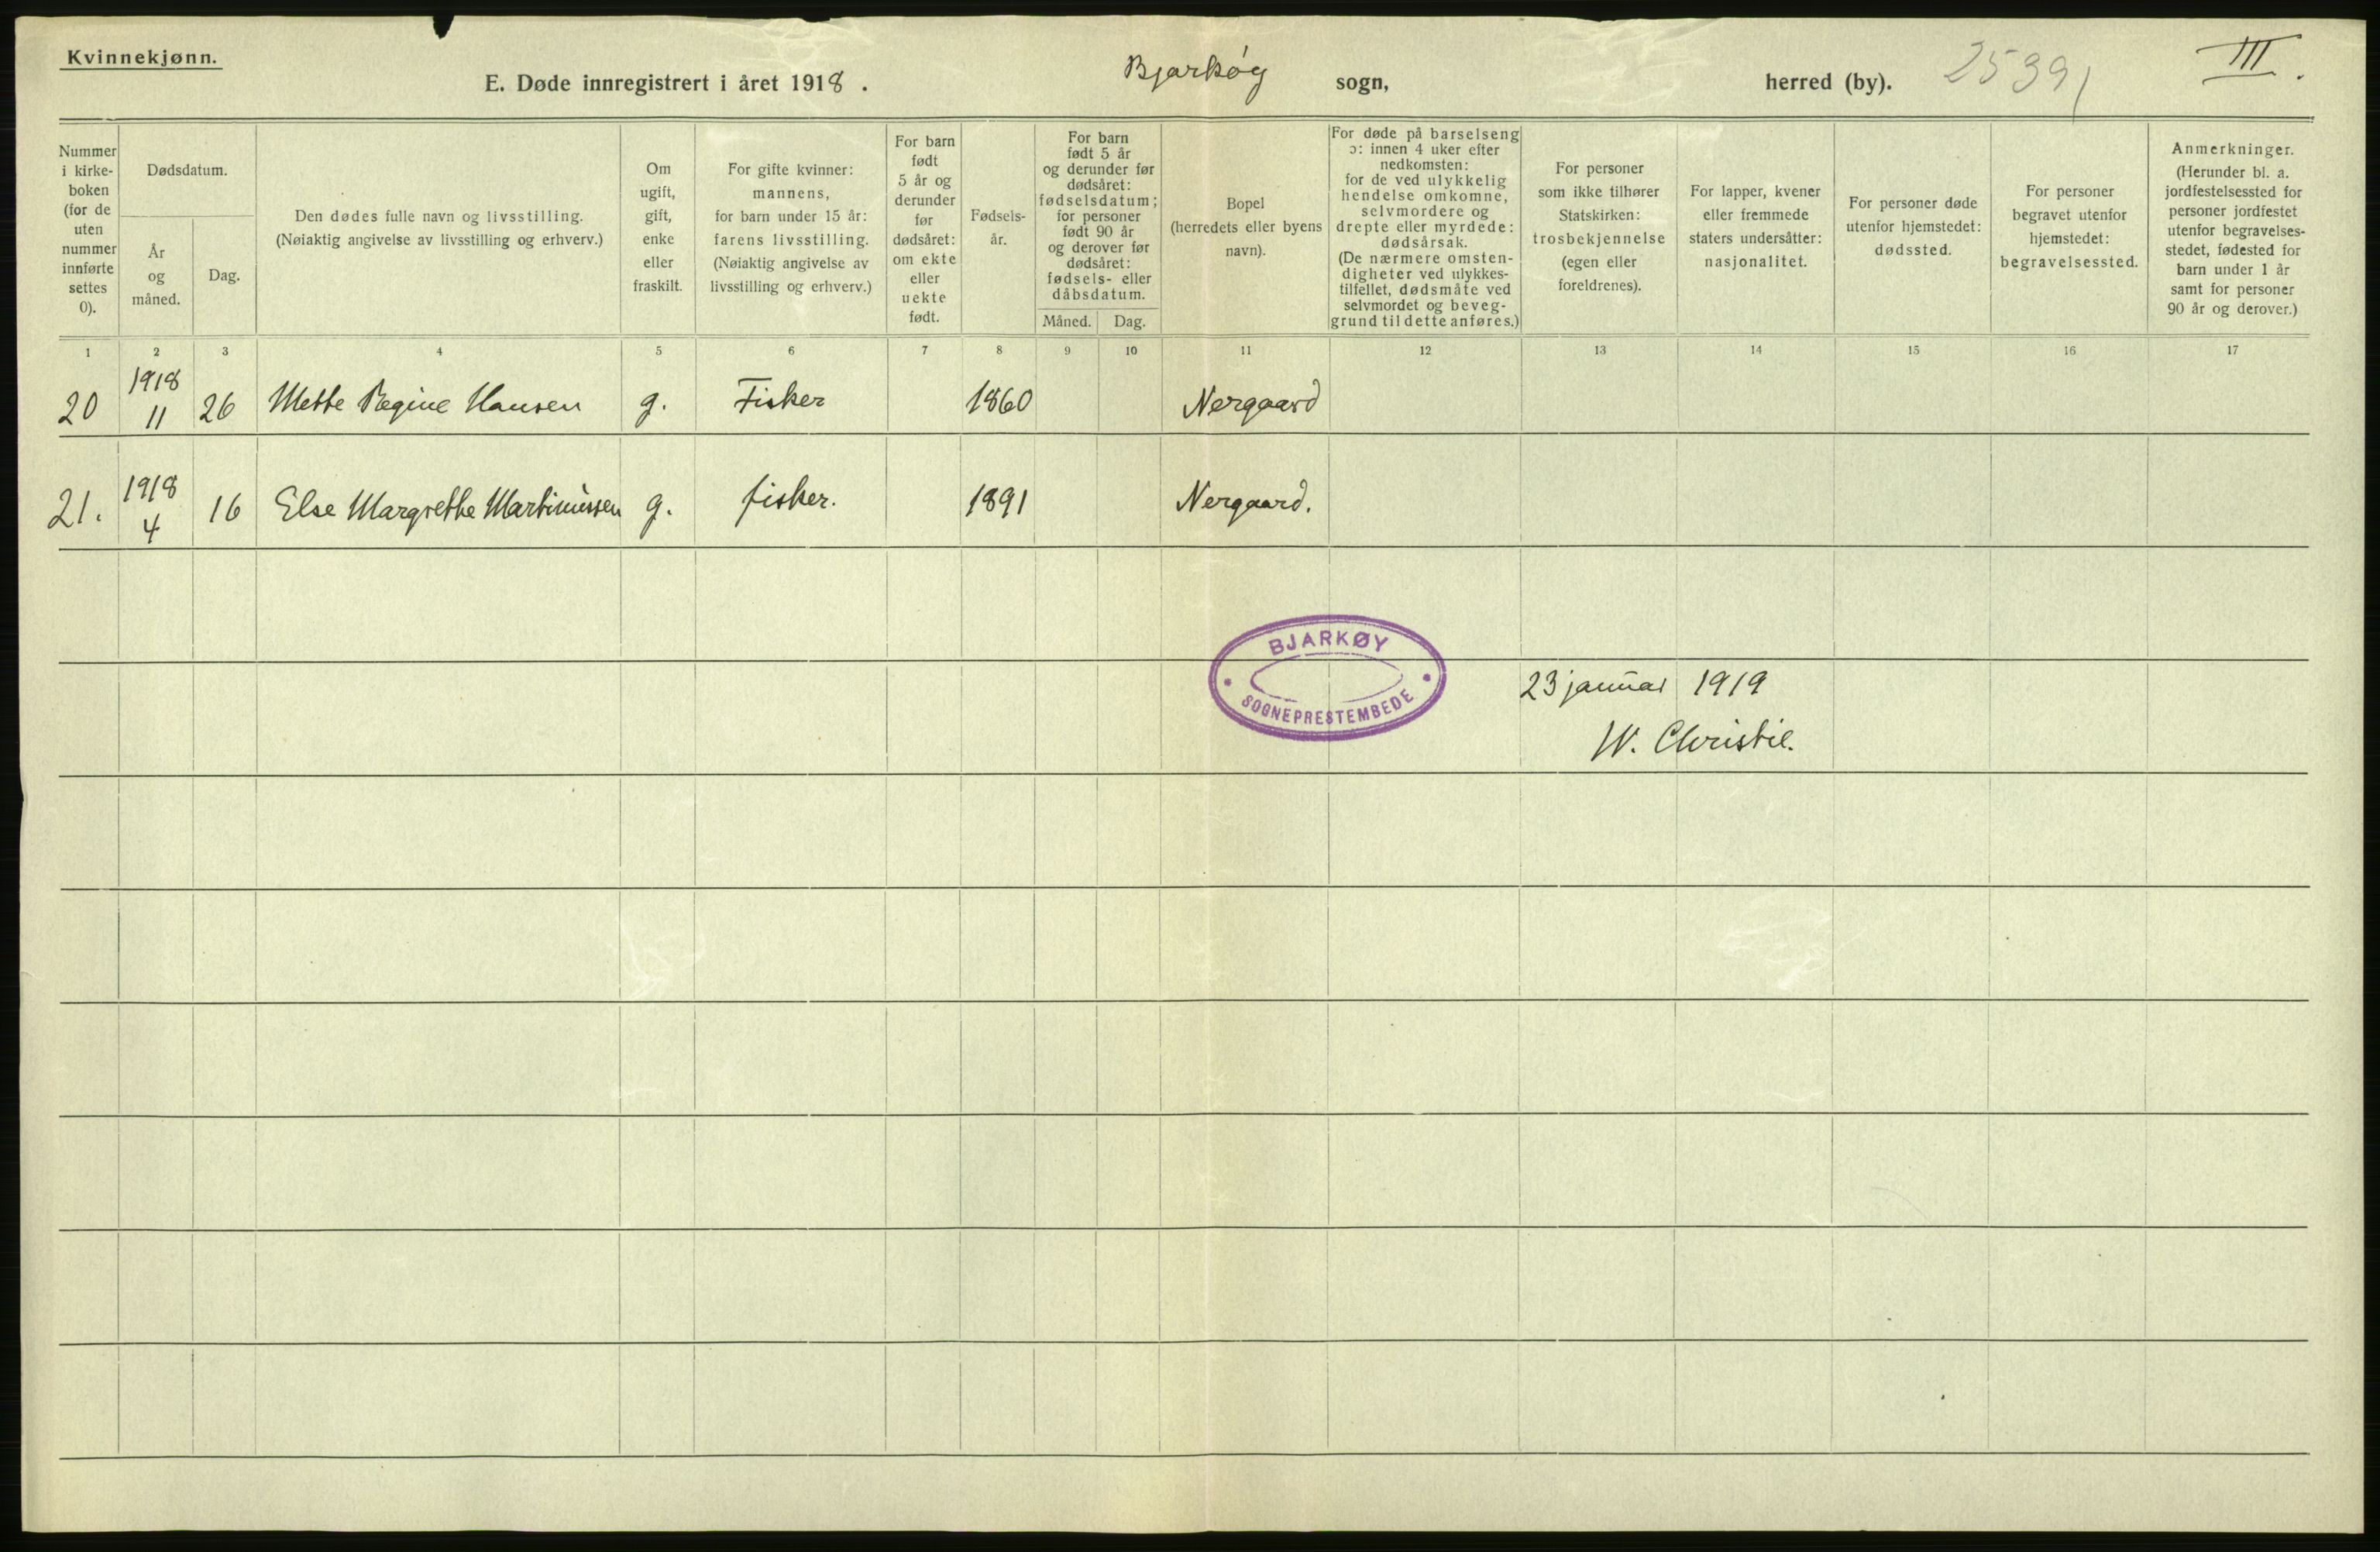 Kvinnekjønn.
E. Døde innregistrert i året 1918. Bjarkøy sogn, herred (by). 25391 III.
Nummer i kirke-boken (for de uten nummer innførte settes 0).
Dødsdatum.
År og måned.
Dag.
Den dødes fulle navn og livsstilling.
(Nøiaktig angivelse av livsstilling og erhverv.)
Om ugift, gift, enke eller fraskilt.
For gifte kvinner: mannens, for barn under 15 år: farens livsstilling. (Nøiaktig angivelse av livsstilling og erhverv.)
For barn født 5 år og derunder før dødsåret: om ekte eller uekte født.
Fødsels-år.
For barn født 5 år og derunder før dødsåret: fødselsdatum; for personer født 90 år og derover før dødsåret: fødsels- eller dåbsdatum.
Måned. Dag.
Bopel (herredets eller byens navn).
For døde på barselseng ɔ: innen 4 uker efter nedkomsten: for de ved ulykkelig hendelse omkomne, selvmordere og drepte eller myrdede: dødsårsak. (De nærmere omsten-digheter ved ulykkes-tilfellet, dødsmåte ved selvmordet og beveg-grund til dette anføres.)
For personer som ikke tilhører Statskirken: trosbekjennelse (egen eller foreldrenes).
For lapper, kvener eller fremmede staters undersåtter: nasjonalitet.
For personer døde utenfor hjemstedet: dødssted.
For personer begravet utenfor hjemstedet: begravelsessted.
Anmerkninger. (Herunder bl. a. jordfestelsessted for personer jordfestet utenfor begravelses-stedet, fødested for barn under 1 år samt for personer 90 år og derover.)
1 2 3 4 5 6 7 8 9 10 11 12 13 14 15 16 17
20 1918 11 26 Mette Regine Hansen g. Fisker 1860 Nergaard
21. 1918 4 16 Else Margrethe Martinussen g. fisker. 1891 Nergaard.
BJARKØY
SOGNEPRESTEMBEDE
23 januar 1919
W. Christie.